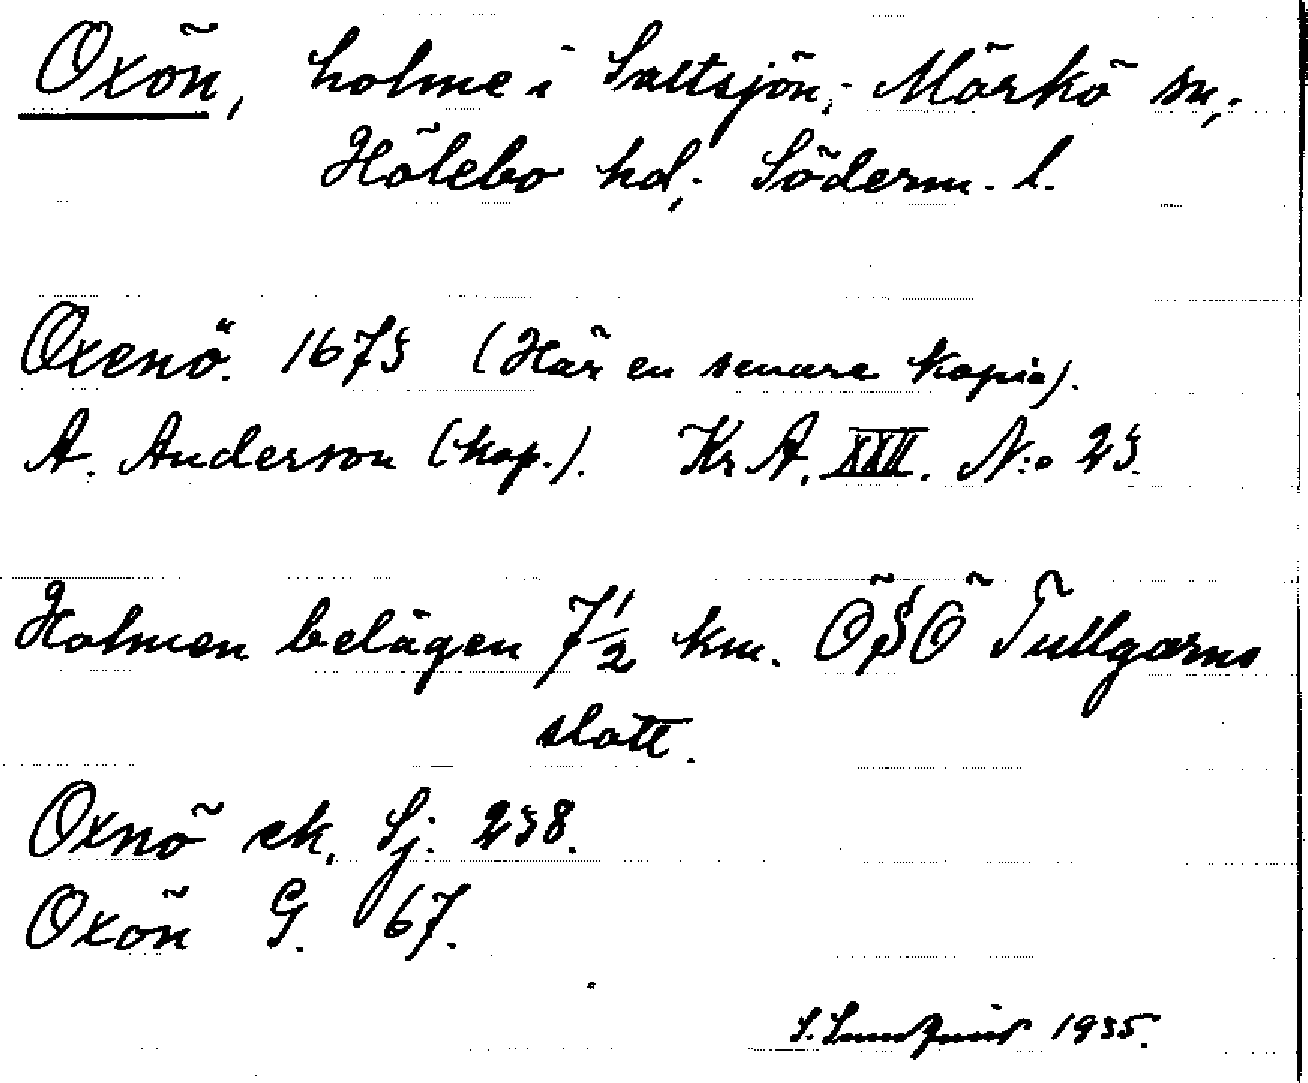 Oxön, holme i Saltsjön; Mörkö sn,;
Hölebo hd,; Söderm. l.
Oxenö. 1673 (Här en senare kopia).
A. Anderson (kop.). Kr A. XXII. N:o 23.
Holmen belägen 7 1/2 km. ÖSÖ Tullgarns
slott.
Oxnö ek. Sj. 238.
Oxön G. 67.
S. Lundquist 1935.